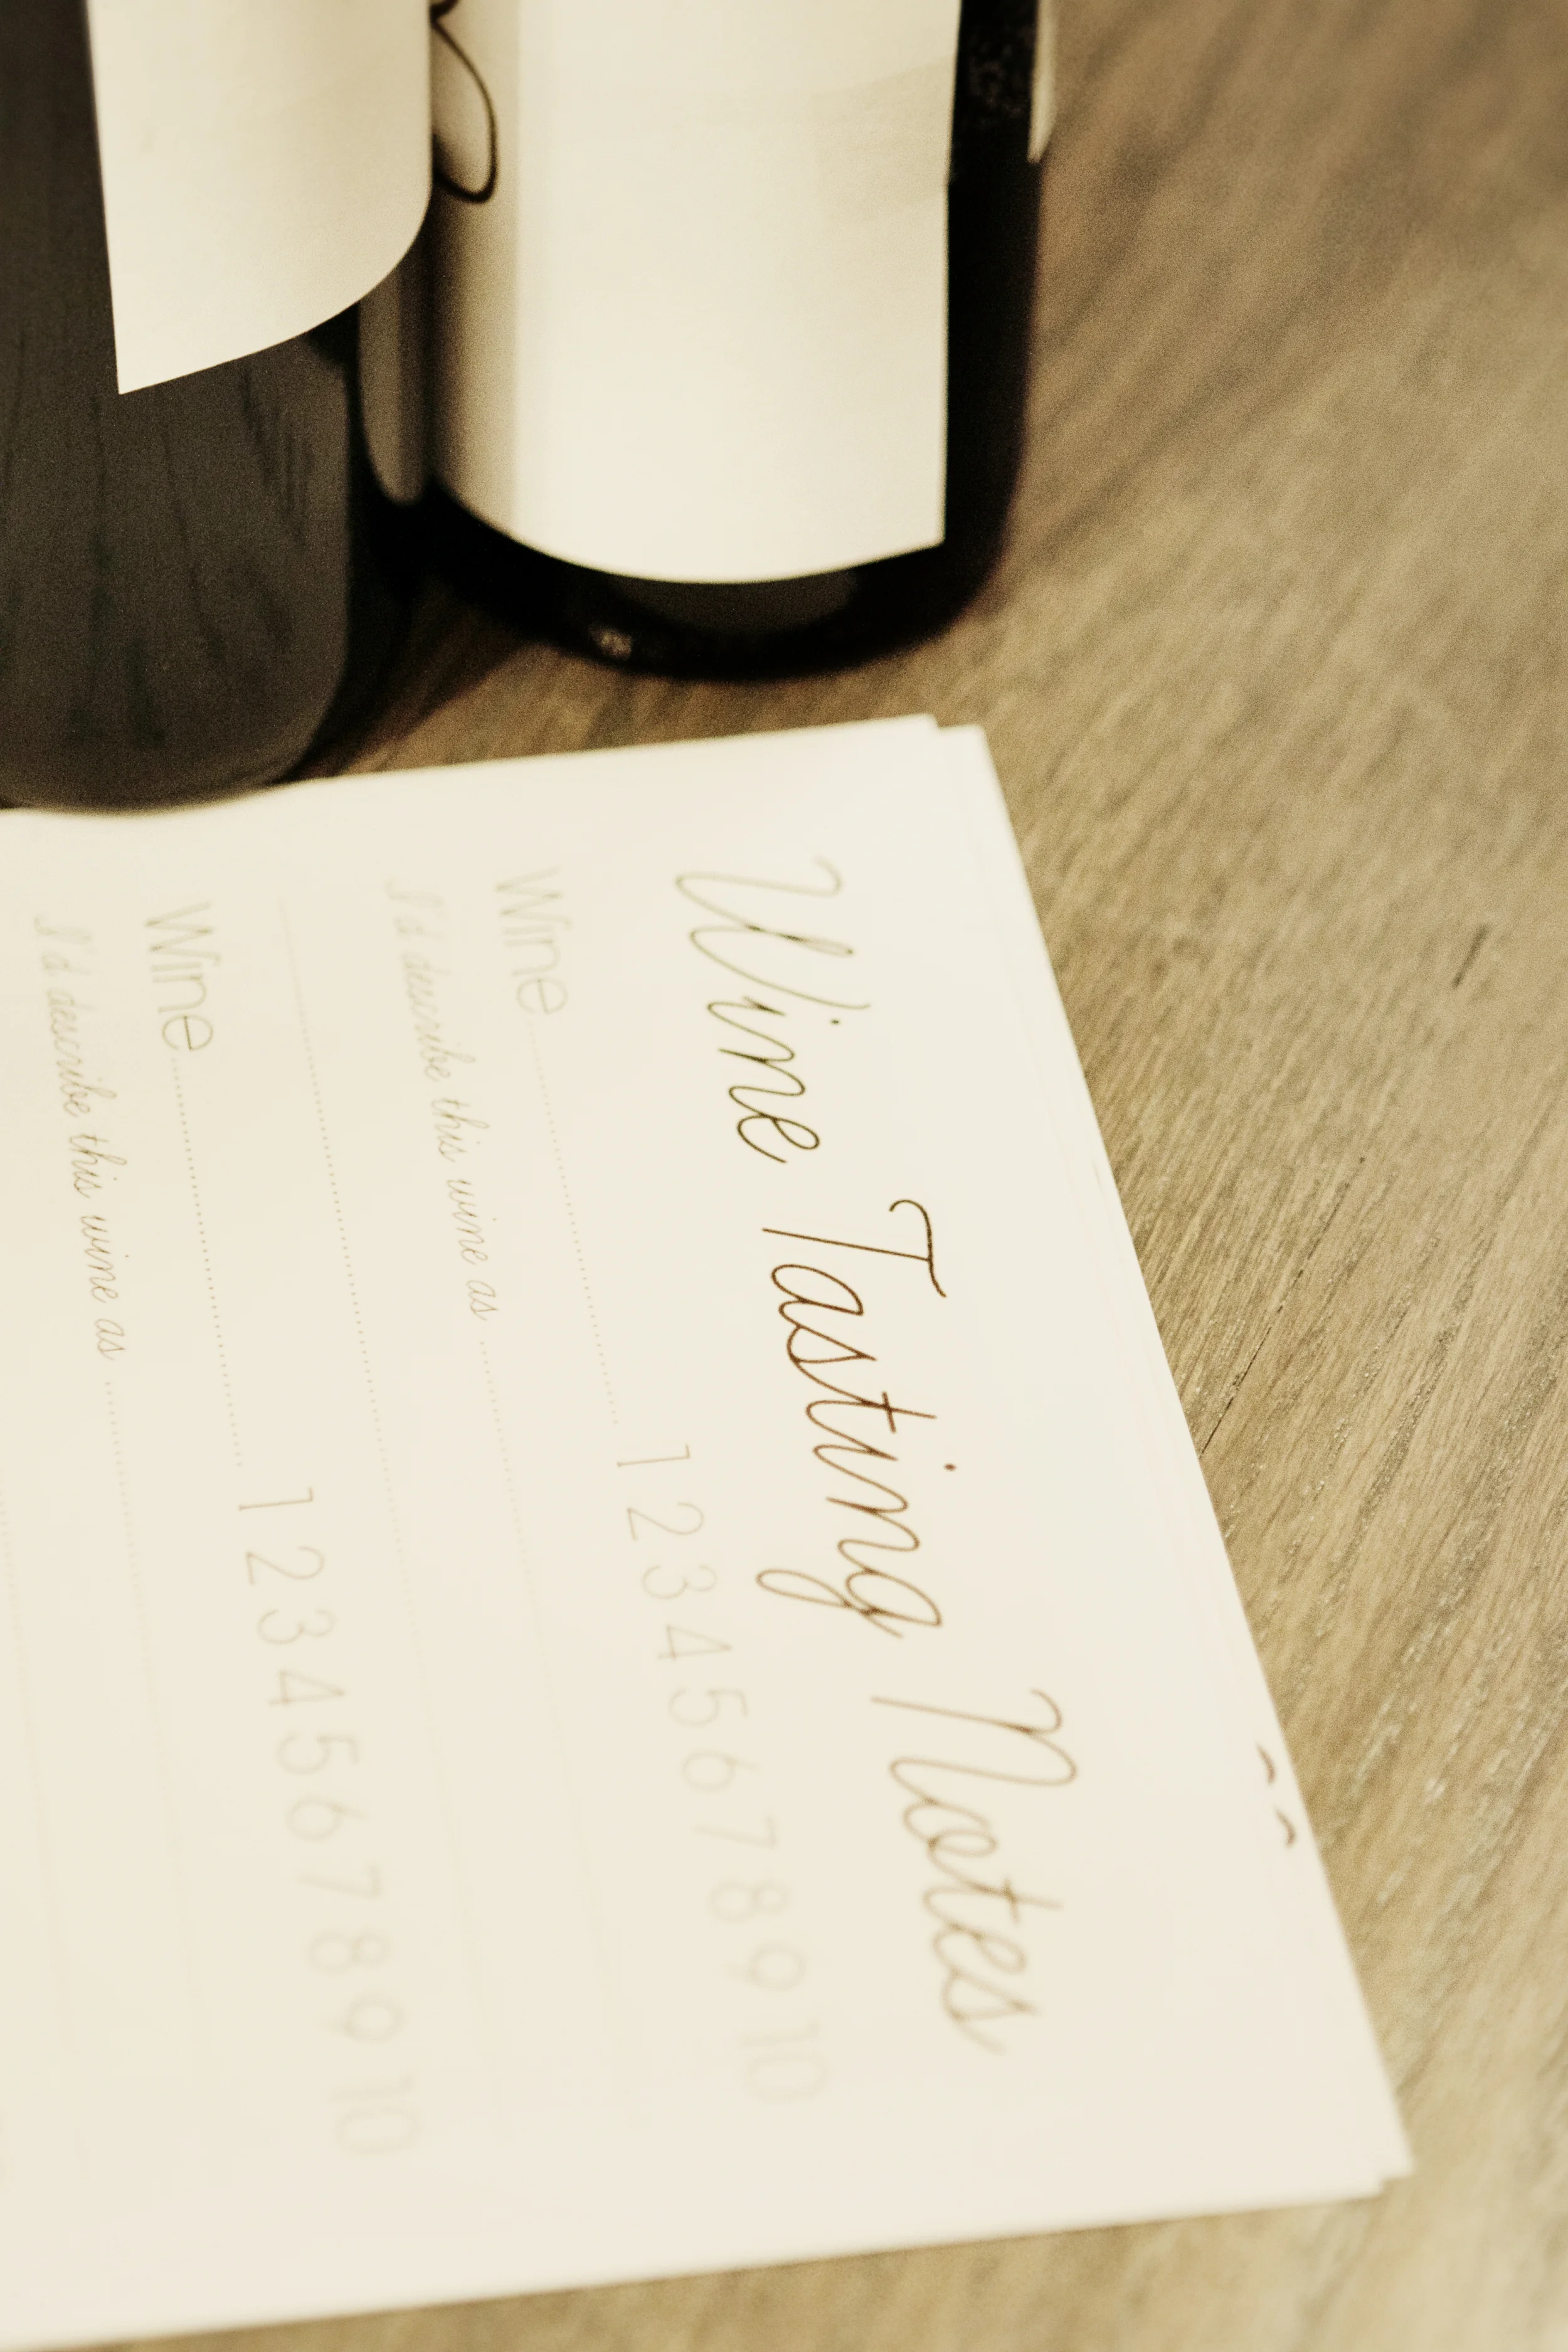 Wine Tasting Notes
Wine 1 2 3 4 5 6 7 8 9 10
I'd describe this wine as
Wine 1 2 3 4 5 6 7 8 9 10
I'd describe this wine as